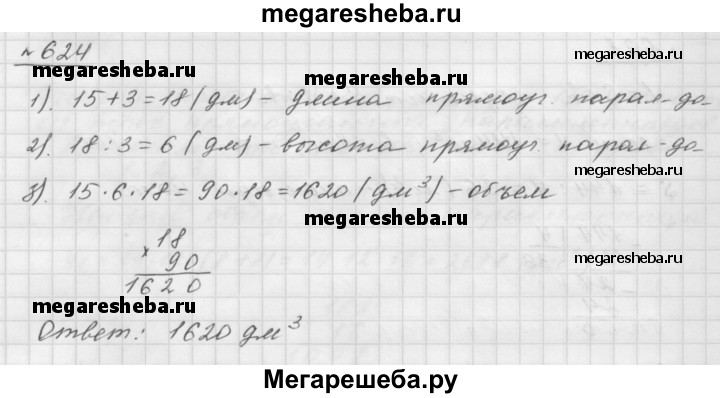 megaresheba.ru
№624
megaresheba.ru
megaresheba.ru
1). 15+3=18 (дм) - длина прямоуг. парал-да
megaresheba.ru
2). 18:3=6 (дм) - высота прямоуг. парал-да
3). 15·6·18=90·18=1620 (дм³) - объем
megaresheba.ru
× 18
90
1620
megaresheba.ru
megaresheba.ru
Ответ: 1620 дм³
megaresheba.ru
Мегарешеба.ру